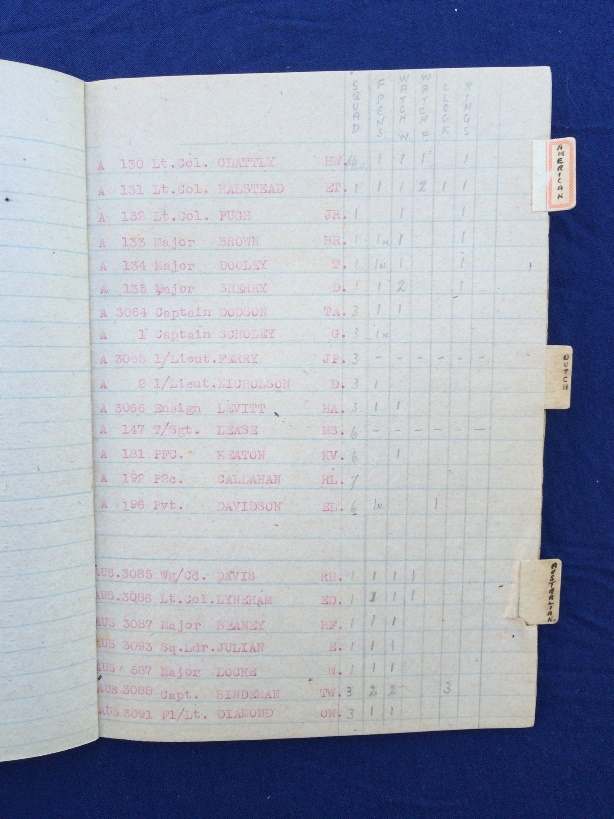 SQUAD F PENS WATCH W WATCH P CLOCK RINGS
A 130 Lt.Col. GHATTLY HW. 4 1 1 1 1
AMERICAN
A 131 Lt.Col. HALSTEAD ET. 1 1 1 2 1 1
A 132 Lt.Col. PUGH JR. 1 1 1
A 133 Major BROWN BR. 1 1w 1 1
A 134 Major DOOLEY T. 1 1w 1 1
A 135 Major SHERRY D. 1 1 2 1
A 3064 Captain DODSON TA. 3 1 1
A 1 Captain SCHOLEY G. 3 1w
A 1/Lieut. FERRY JP. 3 - - - - - -
DUTCH
A 2 1/Lieut. NICHOLSON D. 3 1
A 3066 Ensign LEVITT HA. 3 1 1
A 147 T/Sgt. LEASE MS. 6 - - - - - -
A 181 PFC. KEATON KV. 6 1
A 192 P2c. CALLAHAN HL. 7
A 196 Pvt. DAVIDSON ED. 6 1w 1
AUS. 3085 Wg/Cd. DAVIS RH. 1 1 1 1
AUSTRALIAN
AUS. 3086 Lt.Col. LYNEHAM ED. 1 1 1 1
AUS 3087 Major HEANEY RF. 1 1 1
AUS 3093 Sq.Ldr. JULIAN E. 1 1 1
AUS 587 Major LOCKE W. 1 1 1
AUS 3088 Capt. BINDEMAN TW. 3 2 2 3
AUS 3091 Fl/Lt. DIAMOND ON. 3 1 1